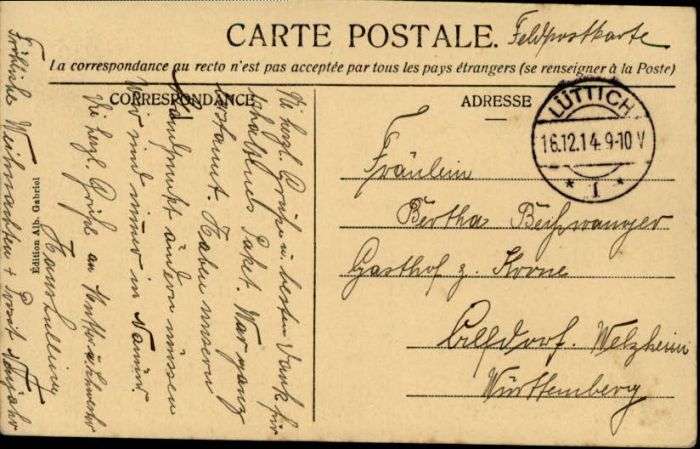 CARTE POSTALE. Feldpostkarte
La correspondance au recto n'est pas acceptée par tous les pays étrangers (se renseigner à la Poste)
CORRESPONDANCE
ADRESSE
LÜTTICH
16.12.14 9-10 V
* 1 *
Fräulein
Bertha Beißwanger
Gasthof z. Krone
Alfdorf. Welzheim
Württemberg
Die herzl. Grüße u. besten Dank für
erhaltenes Paket. War ganz
erstaunt. Haben unsern
Standpunkt ändern müssen
Wir sind immer in Namur.
Die herzl. Grüße an Mutter u. Schwester
Fröhliche Weihnachten + Prosit Neujahr
Édition Alb. Gabriel